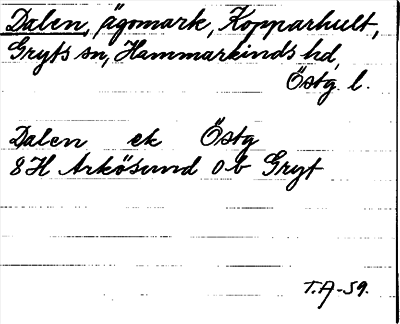 Dalen, ägomark, Kopparhult,
Gryts sn, Hammarkinds hd,
Östg. l.
Dalen ek Östg
8H Arkösund o-b Gryt
T.A-59.